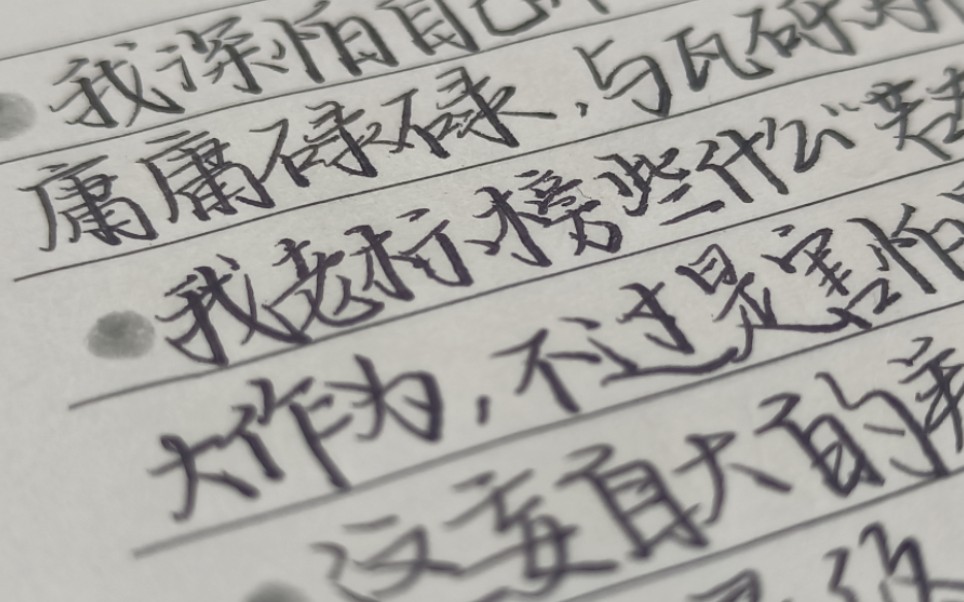 我深怕自己
庸庸碌碌，与瓦砾
我老标榜些什么“
大作为，不过是害怕
汉妄自大的